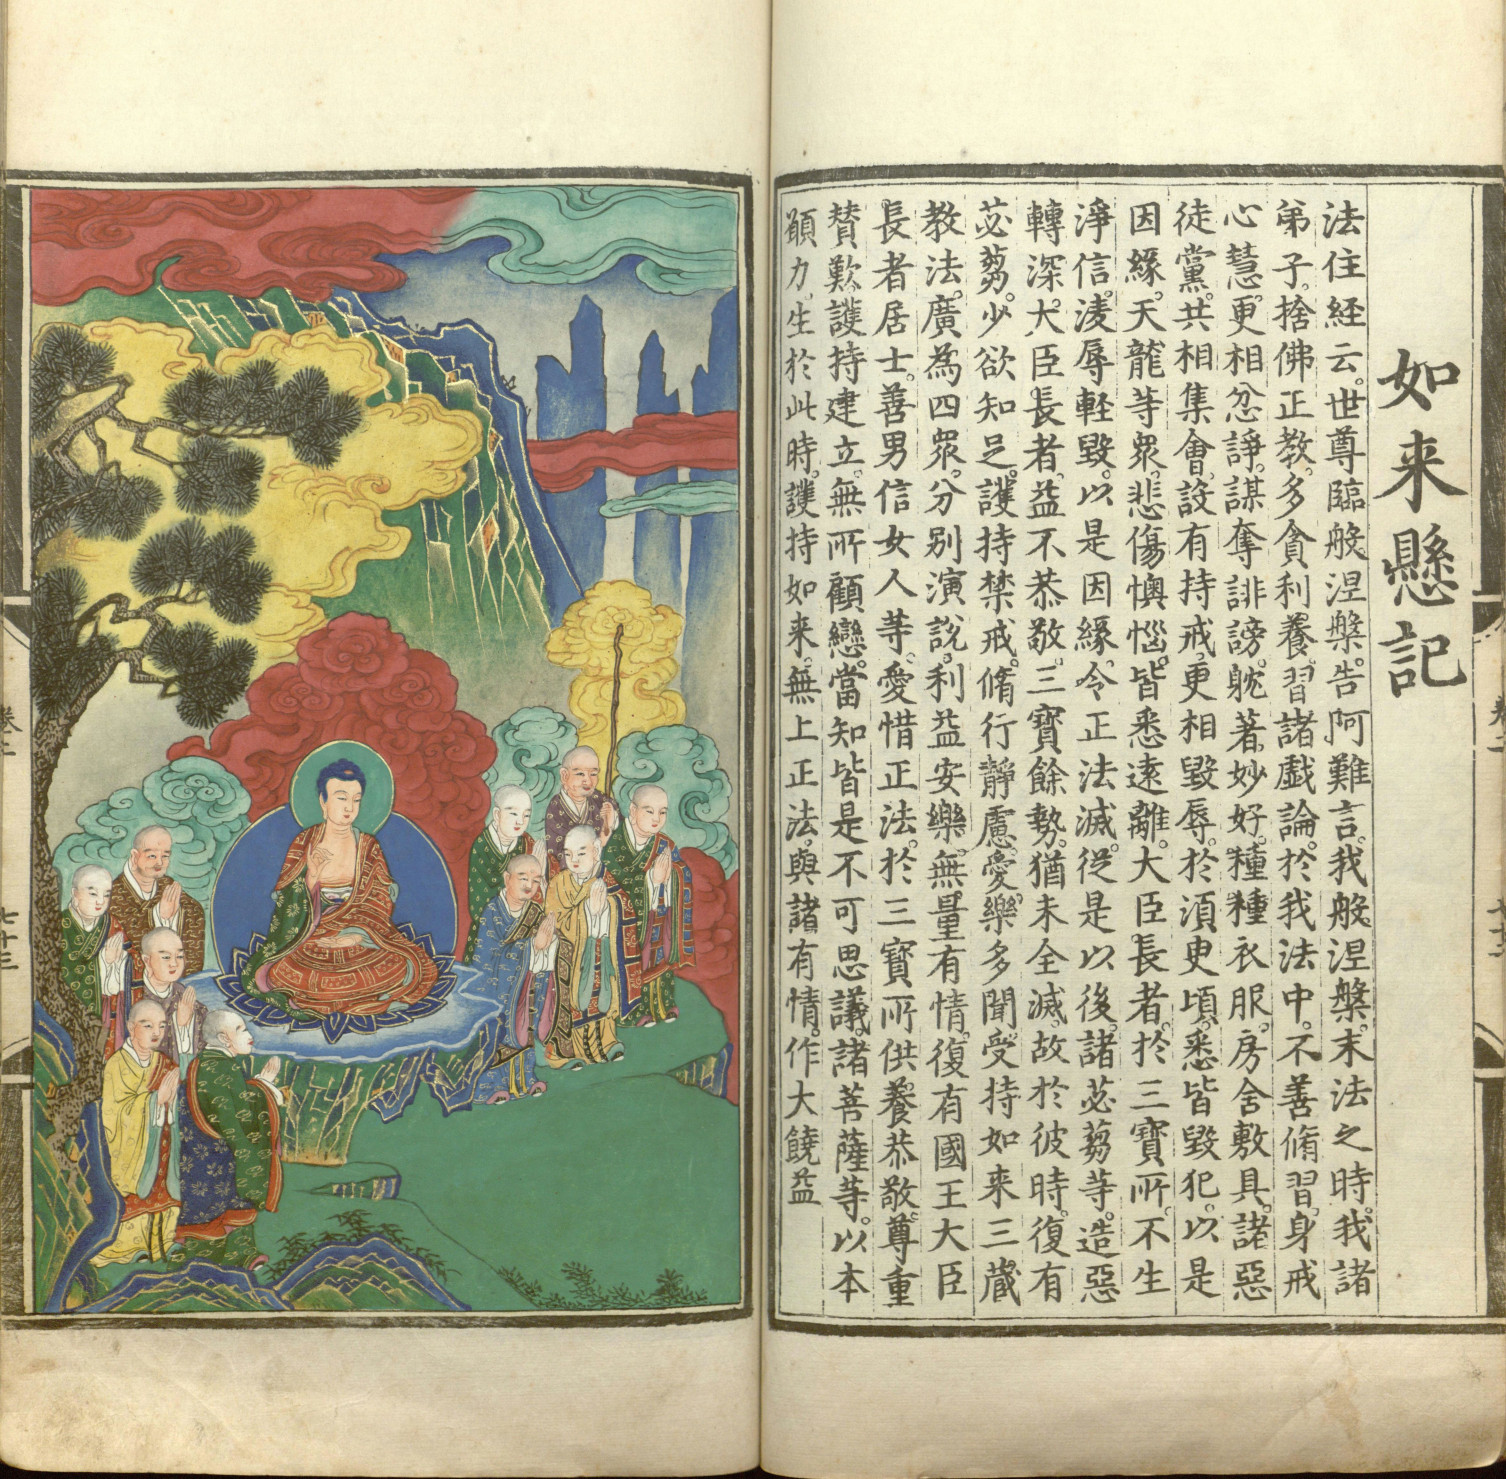 如来懸記
法住经云。世尊臨般涅槃。告阿難言。我般涅槃。末法之時。我諸
弟子。捨佛正教。多貪利養。習諸戲論。於我法中。不善脩習。身戒
心慧。更相忿諍。謀奪誹謗。躭著妙好。種種衣服。房舍敷具。諸惡
徒黨。共相集會。設有持戒。更相毀辱。於須臾頃。悉皆毀犯。以是
因緣。天龍等眾。悲傷懊惱。皆悉遠離。大臣長者。於三寶所。不生
淨信。凌辱軽毀。以是因緣。令正法滅。從是以後。諸苾蒭等。造惡
轉深。大臣長者。益不恭敬。三寶餘勢。猶未全滅。故於彼時。復有
苾蒭。少欲知足。護持禁戒。脩行靜慮。愛樂多聞。受持如来三藏
教法。廣為四眾。分别演說。利益安樂。無量有情。復有國王大臣
長者居士。善男信女人等。愛惜正法。於三寶所。供養恭敬。尊重
賛歎。護持建立。無所顧戀。當知皆是不可思議。諸菩薩等。以本
願力。生於此時。護持如来。無上正法。與諸有情。作大饒益
卷二
七十三